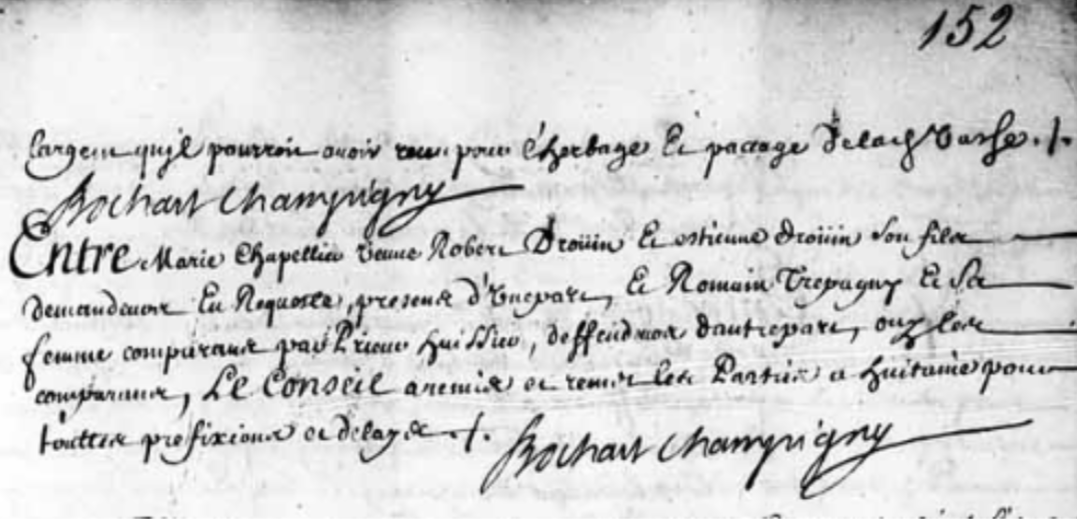 152
l'argent qu'jl pourroit avoir receu pour l'herbage et pacage de lad. Vache ./.
Bochart Champigny
Entre Marie Chapellier veuve Robert Droüin et estienne droüin son fils
demandeurs En Requeste, presens d'Unepart, Et Romain Trepagny Et sa
femme comparans par Prieur Huissier, deffendeurs d'autrepart, ouy les
comparans, Le Conseil a remis et remet les Parties a huitaine pour
touttes prefixions et delays ./.
Bochart Champigny